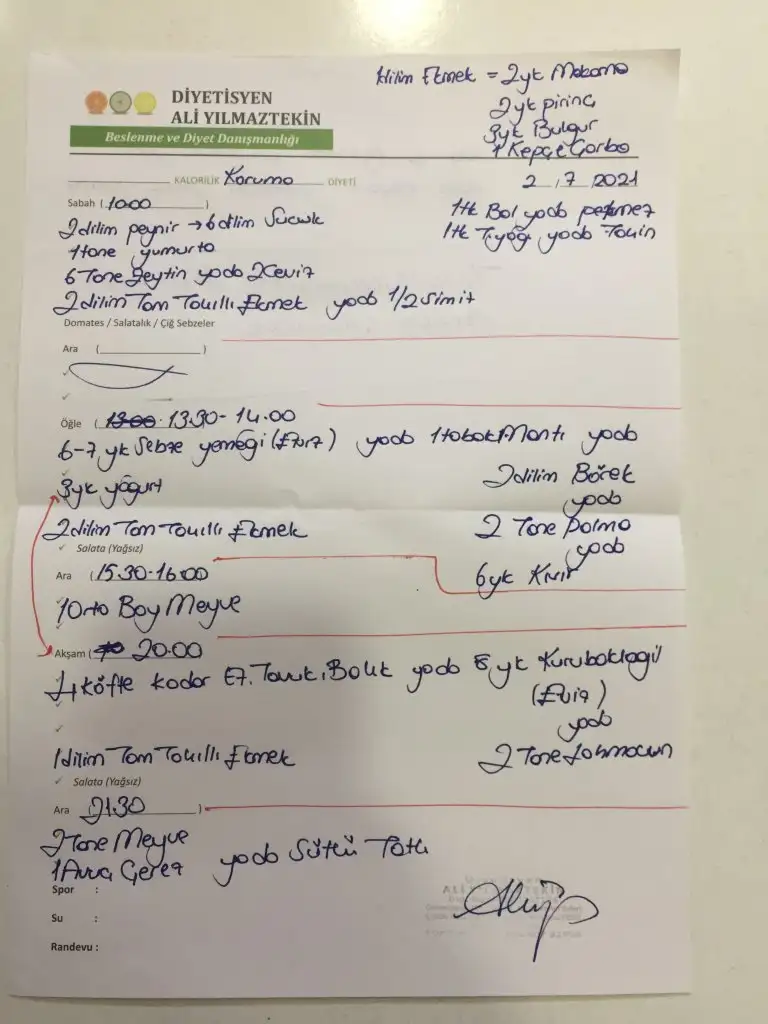 1dilim Ekmek = 2yk Makarna
2yk pirinç
3yk Bulgur
1 Kepçe Çorba
DİYETİSYEN
ALİ YILMAZTEKİN
Beslenme ve Diyet Danışmanlığı
KALORİLİK Koruma DİYETİ
2 . 7 . 2021
Sabah ( 10:00 )
1tk Bal yada pekmez
1tk T.yağı yada Tahin
2dilim peynir → 6dilim Sucuk
1tane yumurta
6 Tane Zeytin yada 2Ceviz
2dilim Tam Tahıllı Ekmek yada 1/2 Simit
Domates / Salatalık / Çiğ Sebzeler
Ara ( )
Öğle ( 13:00 13.30-14.00
6-7 yk Sebze yemeği (Etsiz) yada 1tabak Mantı yada
3yk yoğurt
2dilim Börek
yada
2dilim Tam Tahıllı Ekmek
2 Tane Dolma
yada
Salata (Yağsız)
Ara ( 15.30-16:00
6yk Kısır
1Orta Boy Meyve
Akşam ( 20:00
4 köfte kadar Et, Tavuk, Balık yada 8 yk Kurubaklagil
(Etsiz)
yada
1dilim Tam Tahıllı Ekmek
2 Tane Lahmacun
Salata (Yağsız)
Ara ( 21.30 )
2tane Meyve
1Avuç Çerez yada Sütlü Tatlı
Spor :
Su :
Randevu :